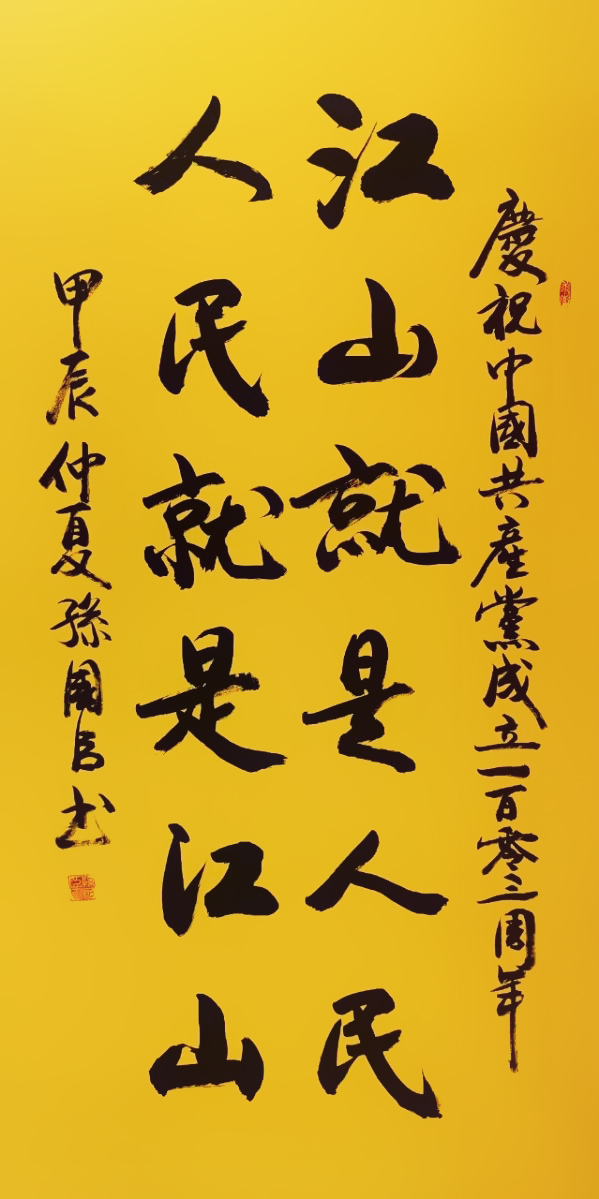 慶祝中國共產黨成立一百零三周年
江山就是人民
人民就是江山
甲辰仲夏孫國占书